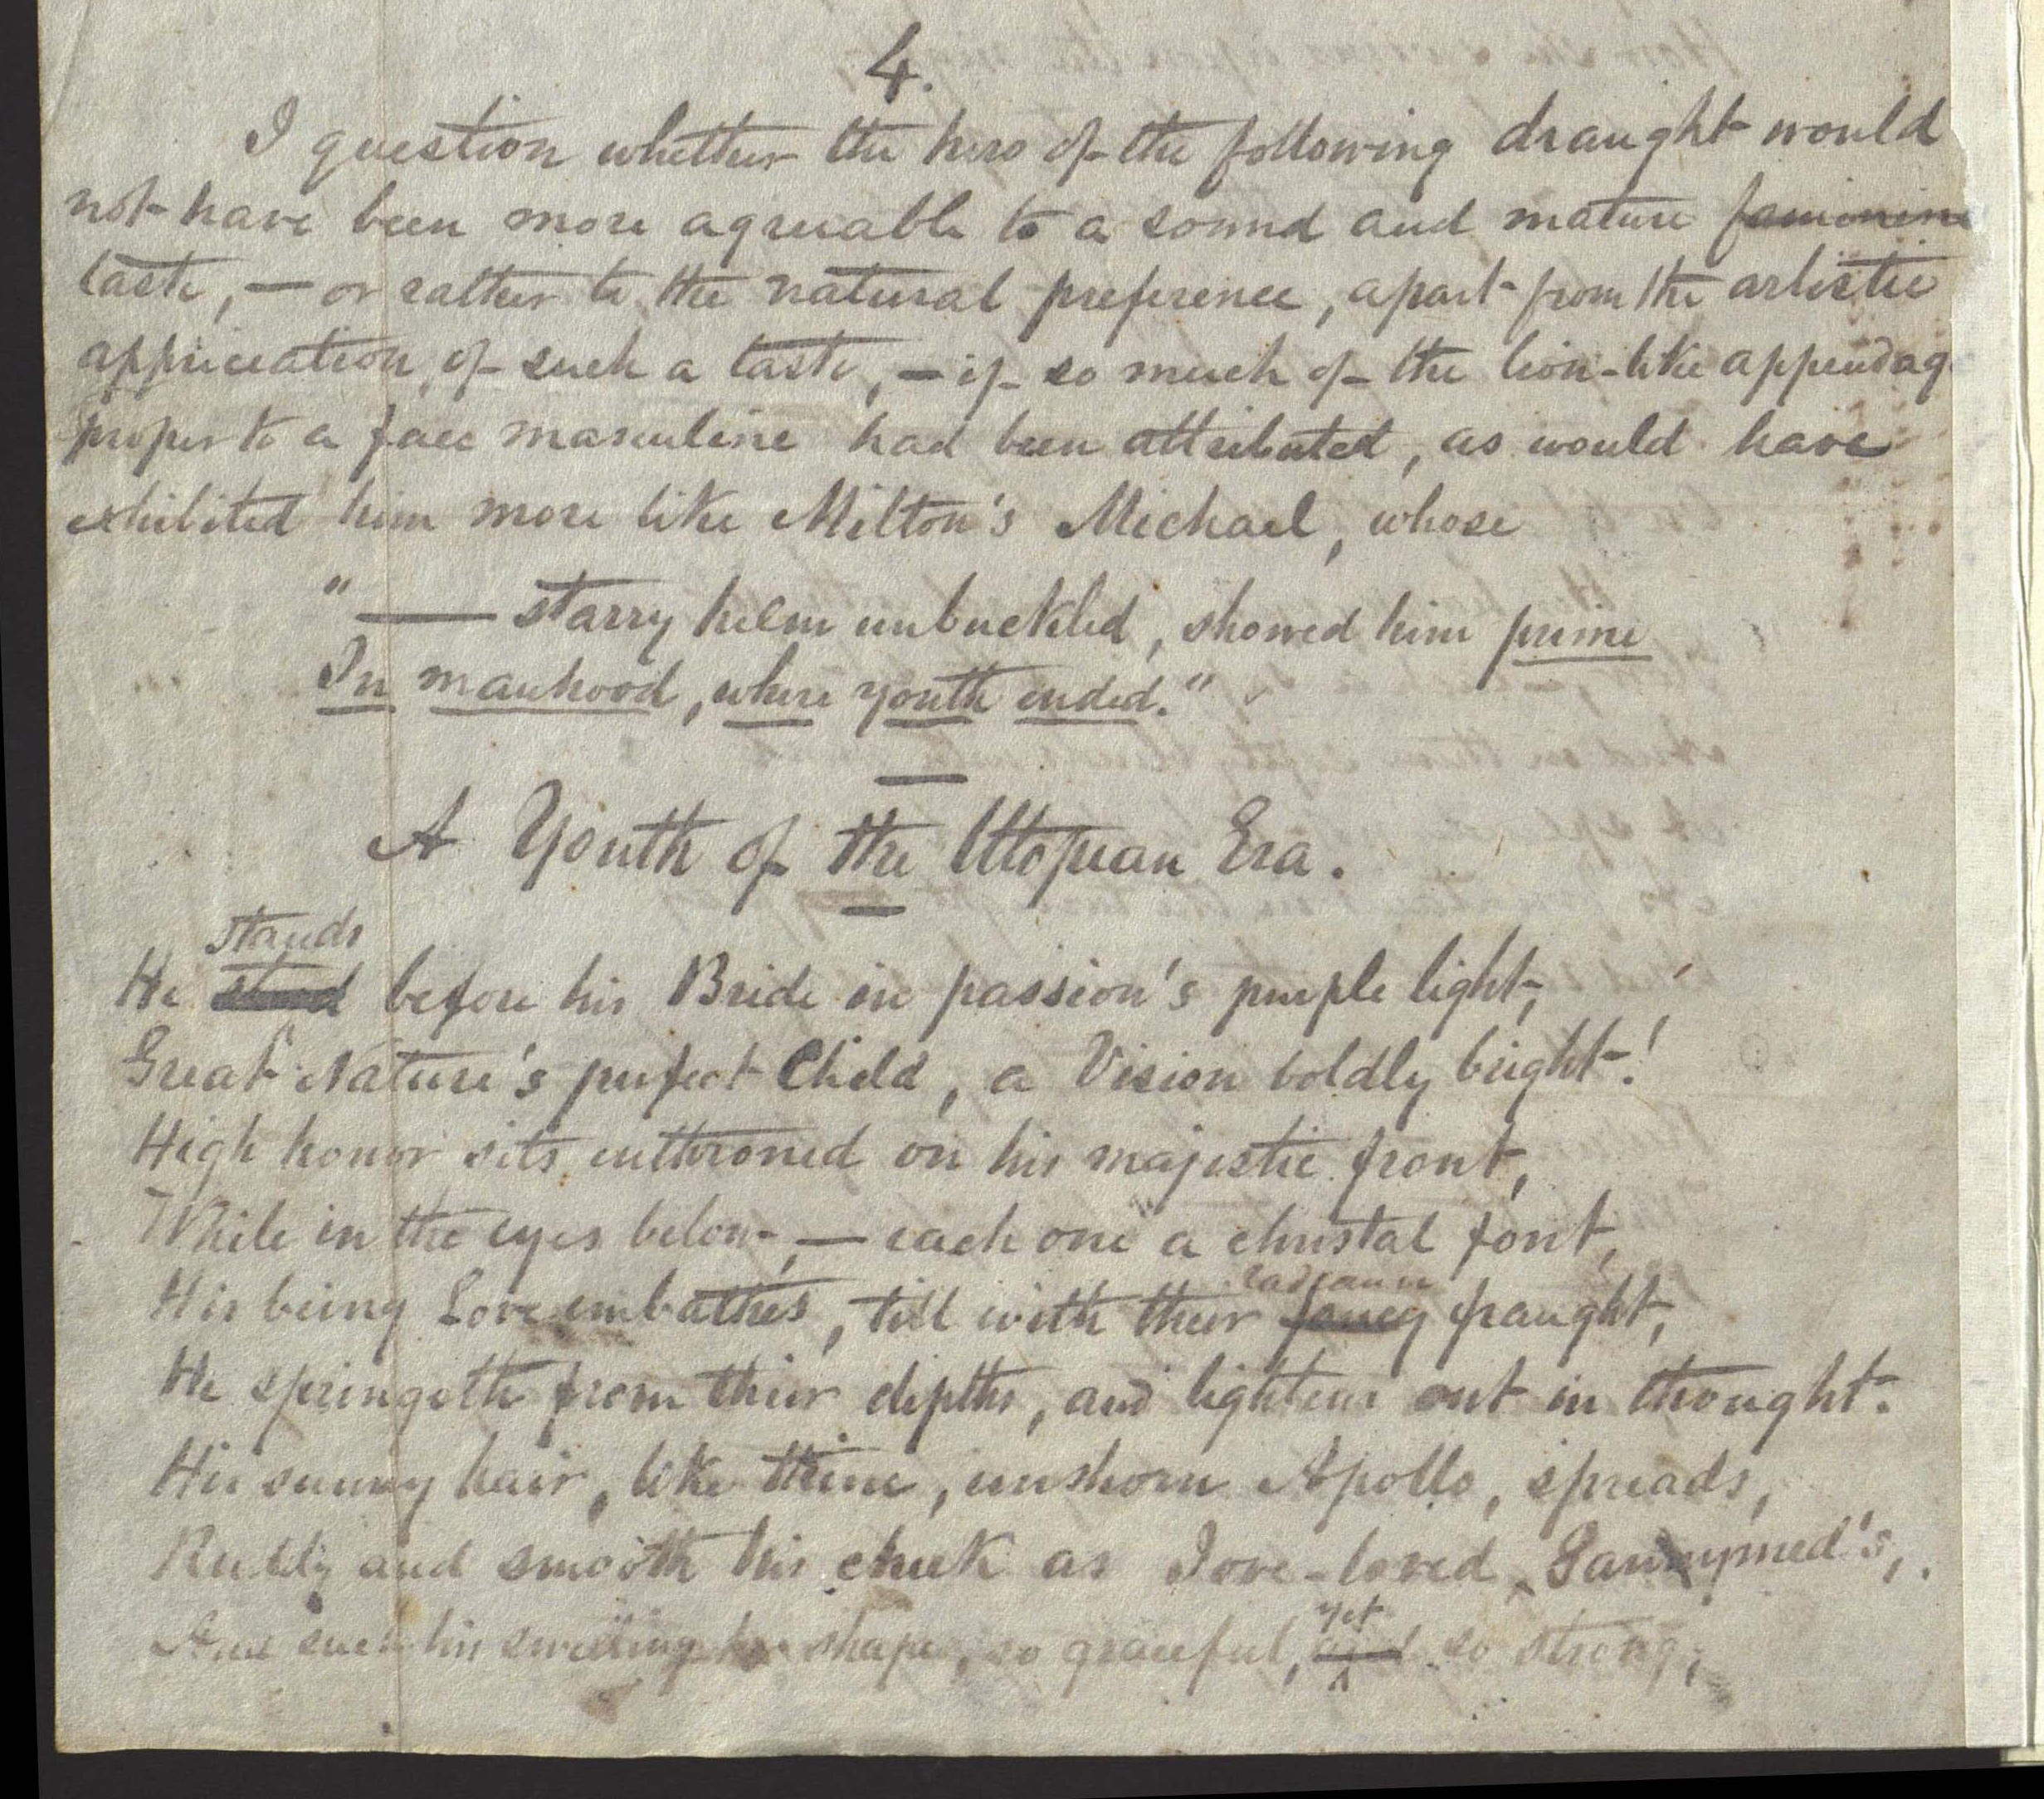 4.
I question whether the hero of the following draught would
not have been more agreeable to a sound and mature feminine
taste, — or rather to the natural preference, apart from the artistic
appreciation, of such a taste, — if so much of the lion-like appendag
proper to a face masculine had been attributed, as would have
exhibited him more like Milton's Michael, whose
"—— starry helm unbuckled, showed him prime
In manhood, where youth ended."
A Youth of the Utopian Era.
stands
He stood before his Bride in passion's purple light,
Great Nature's perfect Child, a Vision boldly bright!
High honor sits enthroned on his majestic front,
While in the eyes below, — each one a christal font,
radiance
His being Love embathes, till with their fancy fraught,
He springeth from their depths, and lightens out in thought.
His sunny hair, like thine, unshorn Apollo, spreads,
Ruddy and smooth his cheek as Jove-loved Ganymed's,
yet
And such his shape, so graceful, and so strong,